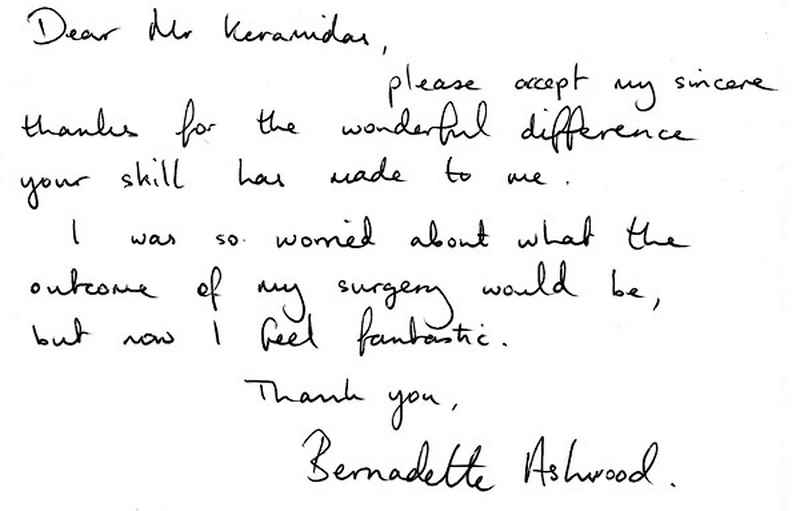 Dear Mr Keramidas,
please accept my sincere
thanks for the wonderful difference
your skill has made to me.
I was so worried about what the
outcome of my surgery would be,
but now I feel fantastic.
Thank you,
Bernadette Ashwood.